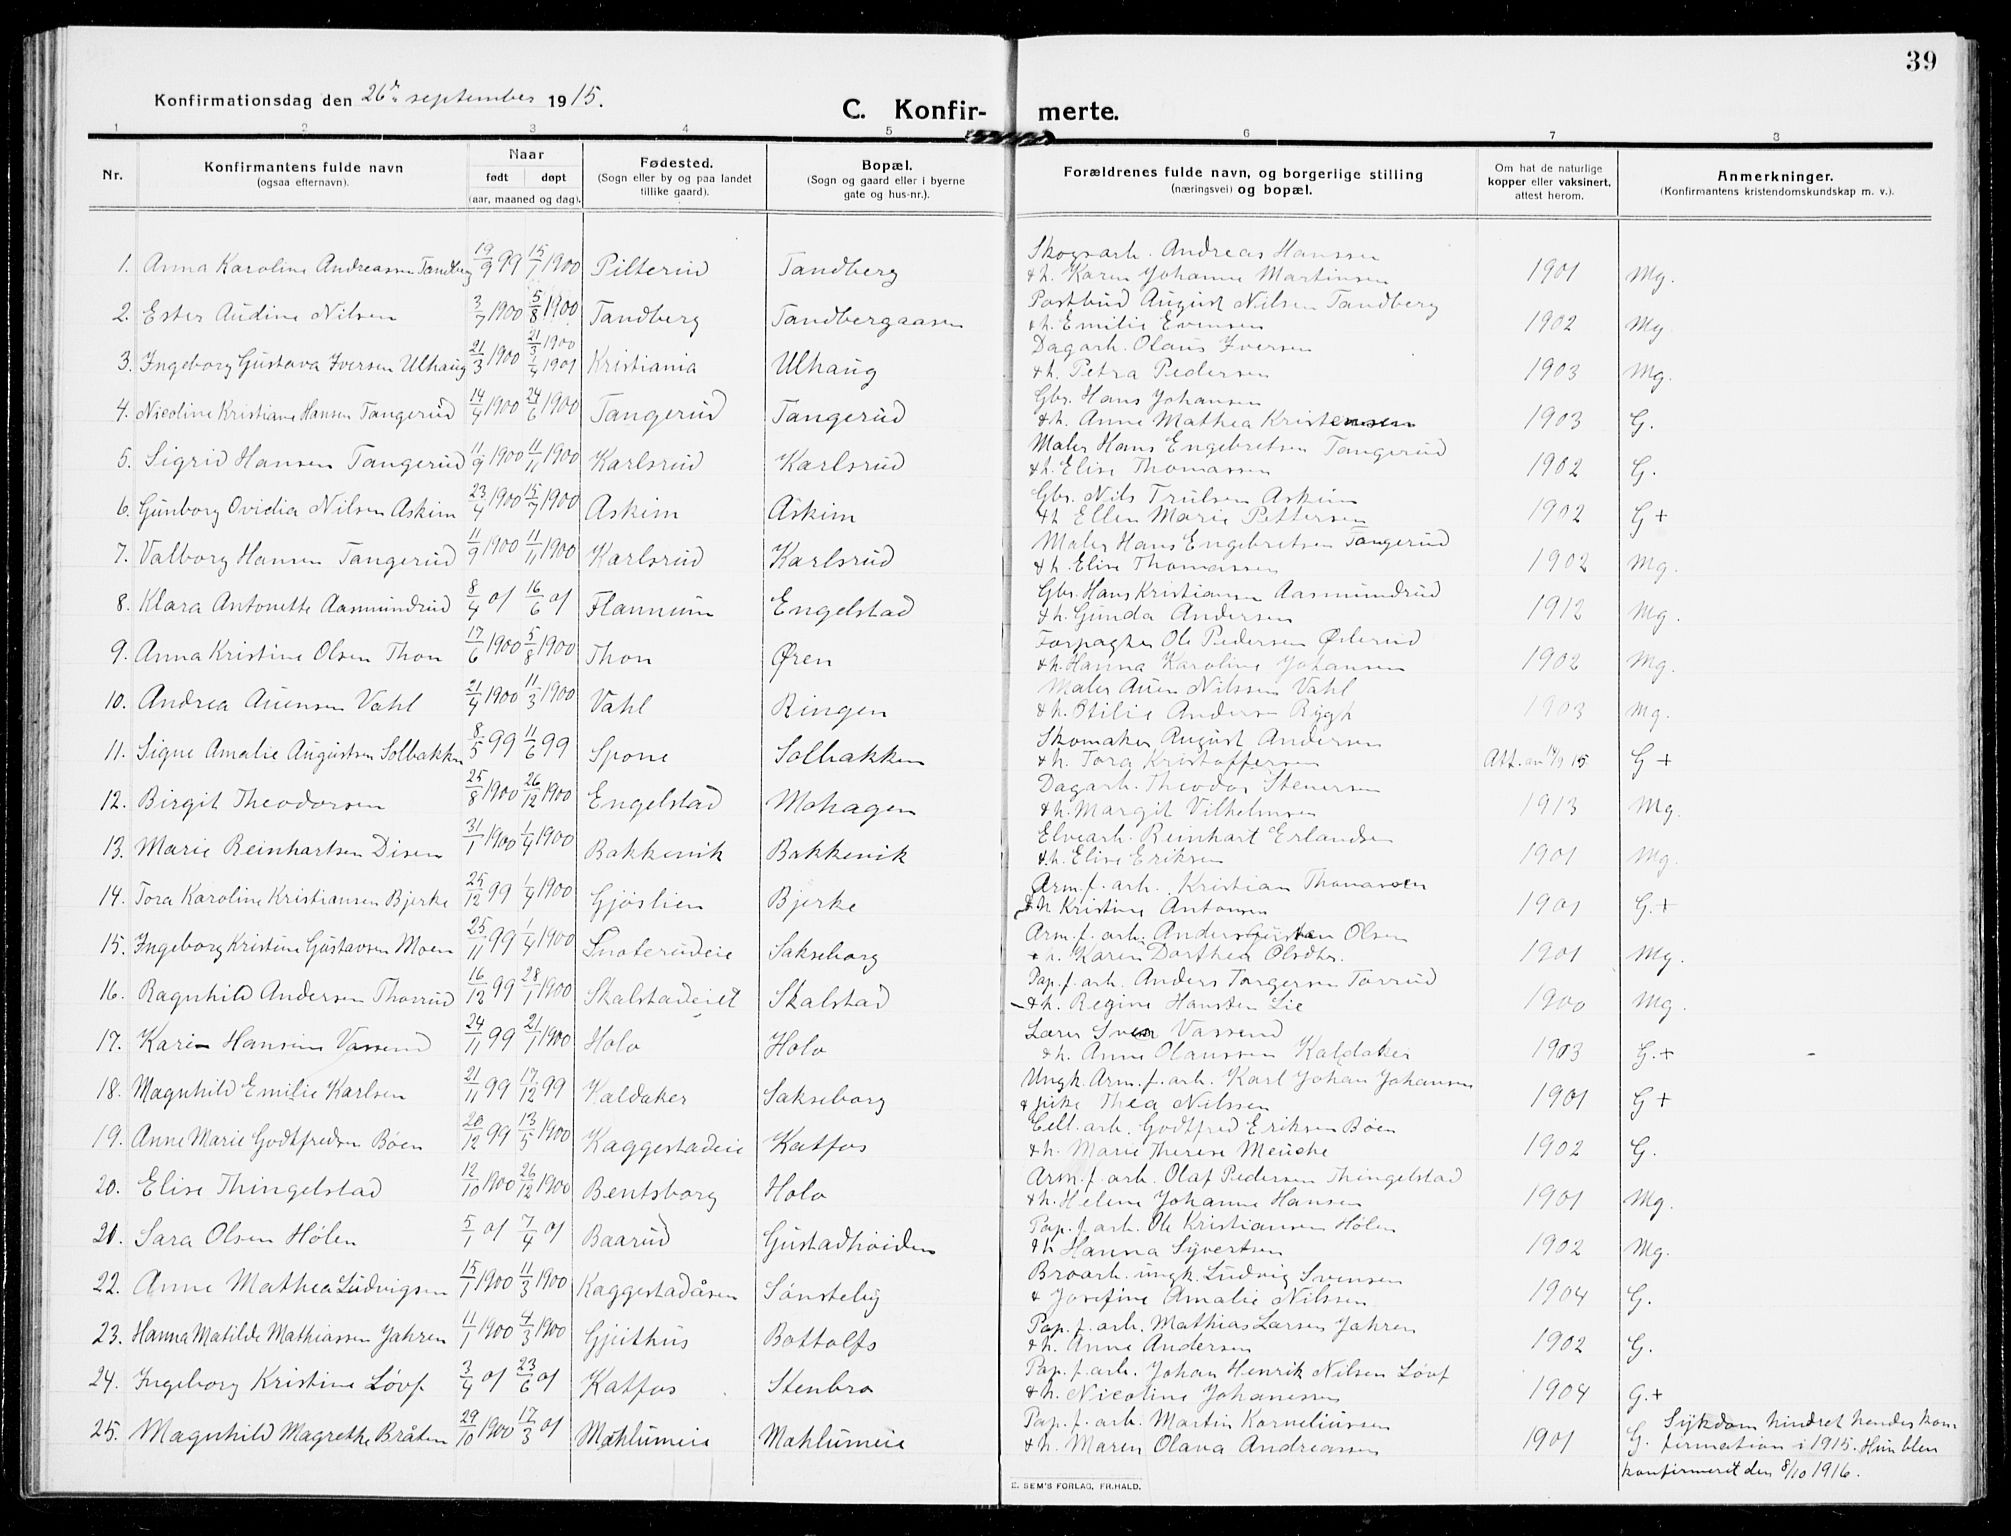 39
Konfirmationsdag den 26de september 1915.
C. Konfir- merte.
1 2 3 4 5 6 7 8
Nr. Konfirmantens fulde navn (ogsaa efternavn). Naar født døpt (aar, maaned og dag). Fødested. (Sogn eller by og paa landet tillike gaard). Bopæl. (Sogn og gaard eller i byerne gate og hus-nr.). Forældrenes fulde navn, og borgerlige stilling (næringsvei) og bopæl. Om hat de naturlige kopper eller vaksinert, attest herom. Anmerkninger. (Konfirmantens kristendomskundskap m. v.).
1. Anna Karoline Andreassen Tandberg 19/9 99 15/1 1900 Pilterud Tandberg Skogsarb. Andreas Hanssen & h. Karen Johanne Martinsen 1901 Mg.
2. Ester Audine Nilsen 3/7 1900 5/8 1900 Tandberg Tandbergaasen Postbud August Nilsen Tandberg & h. Emilie Evensen 1902 Mg
3. Ingeborg Gustava Iversen Ulhaug 21/3 1900 21/3 1900 1/4 1901 Kristiania Ulhaug Dagarb. Olaus Iversen & h. Petra Pedersen 1903 Mg.
4. Nicoline Kristiane Hansen Tangerud 14/4 1900 24/6 1900 Tangerud Tangerud Gbr. Hans Johansen & h. Anne Mathea Kristensen 1903 G.
5. Sigrid Hansen Tangerud 11/9 1900 11/11 1900 Karlsrud Karlsrud Maler Hans Engebretsen Tangerud & h. Elise Thomassen 1902 G.
6. Gunborg Ovidia Nilsen Askim 23/4 1900 15/7 1900 Askim Askim Gbr. Nils Trulsen Askim & h Ellen Marie Pettersen 1902 G +
7. Valborg Hansen Tangerud 11/9 1900 11/11 1900 Karlsrud Karlsrud Maler Hans Engebretsen Tangerud & h. Elise Thomassen 1902 Mg.
8. Klara Antonette Aasmundrud 8/4 01 16/6 01 Flannum Engelstad Gbr. Hans Kristiansen Aasmundrud & h. Gunda Andersen 1912 Mg.
9. Anna Kristine Olsen Thon 17/6 1900 5/8 1900 Thon Øren Forpagter Ole Pedersen Ørlerud & h. Hanna Karoline Johansen 1902 Mg.
10. Andrea Auensen Vahl 21/4 1900 11/3 1900 Vahl Ringen Maler Auen Nilssen Vahl & h. Otilie Andersen Rygh 1903 Mg.
11. Signe Amalie Augustsen Solbakken 8/5 99 11/6 99 Spone Solbakken Skomaker August Andersen & h. Tora Kristoffersen Att. av 14/9 15 G +
12. Birgit Theodorsen 25/8 1900 26/12 1900 Engelstad Mohagen Dagarb. Theodor Stenersen & h. Margit Vilhelmsen 1913 Mg.
13. Marie Reinhartsen Disen 31/1 1900 1/4 1900 Bakkevik Bakkevik Elvearb. Reinhart Erlandsen & h. Elise Eriksen 1901 Mg.
14. Tora Karoline Kristiansen Bjerke 25/12 99 1/4 1900 Gjøslien Bjerke Arm. f. arb. Kristian Thomassen & h Kristine Antonsen 1901 G. +
15. Ingeborg Kristine Gustavsen Moen 25/11 99 1/4 1900 Snoterudeie Sakseborg Arm. f. arb. Anders Gustav Olsen & h. Karen Dorthea Olsdtr. 1901 Mg.
16. Ragnhild Andersen Thorrud 16/12 99 28/1 1900 Skalstadeiet Skalstad Pap. f. arb. Anders Torgersen Torrud & h. Regine Hansten Lie 1900 Mg.
17. Karin Hansine Vassend 24/11 99 21/1 1900 Holo Holo Lærer Sven Vassend & h. Anne Olaussen Kaldaker 1903 G. +
18. Magnhild Emilie Karlsen 21/11 99 17/12 99 Kaldaker Sakseborg Ungk. Arm. f. arb. Karl Johan Johansen & pike Thea Nilssen 1901 G +
19. Anne Marie Godtfredsen Bøen 20/12 99 13/5 1900 Kaggestadeie Katfos Cell. arb. Godtfred Eriksen Bøen & h. Marie Therese Meuche 1902 G.
20. Elise Thingelstad 12/10 1900 26/12 1900 Bentsborg Holo Arm. f. arb. Olaf Pedersen Thingelstad & h. Helene Johanne Hansen 1901 Mg.
21. Sara Olsen Hølen 5/1 01 7/4 01 Baarud Gustadhøiden Pap. f. arb. Ole Kristiansen Hølen & h Hanna Syvertsen 1902 Mg.
22. Anne Mathea Ludvigsen 15/1 1900 11/3 1900 Kaggestadåsen Sønsteby Broarb. ungk. Ludvig Svensen & Josefine Amalie Nilssen 1904 G.
23. Hanna Matilde Mathiassen Jahren 11/1 1900 4/3 1900 Gjeithus Bottolfs Pap. f. arb. Mathias Larsen Jahren & h. Anne Andersen 1902 G.
24. Ingeborg Kristine Løvf 3/4 01 23/6 01 Katfos Stenbro Pap. f. arb. Johan Henrik Nilsen Løvf & h. Nicoline Johanessen 1904 G. +
25. Magnhild Magrethe Bråten 29/10 1900 17/3 01 Mahlumeie Mahlumeie Pap. f. arb. Martin Korneliussen & h. Maren Olava Andreassen 1901 G. Sykdom hindret hendes kon firmation i 1915. Hun blev konfirmeret den 8/10 1916.
E. SEM'S FORLAG, FR.HALD.